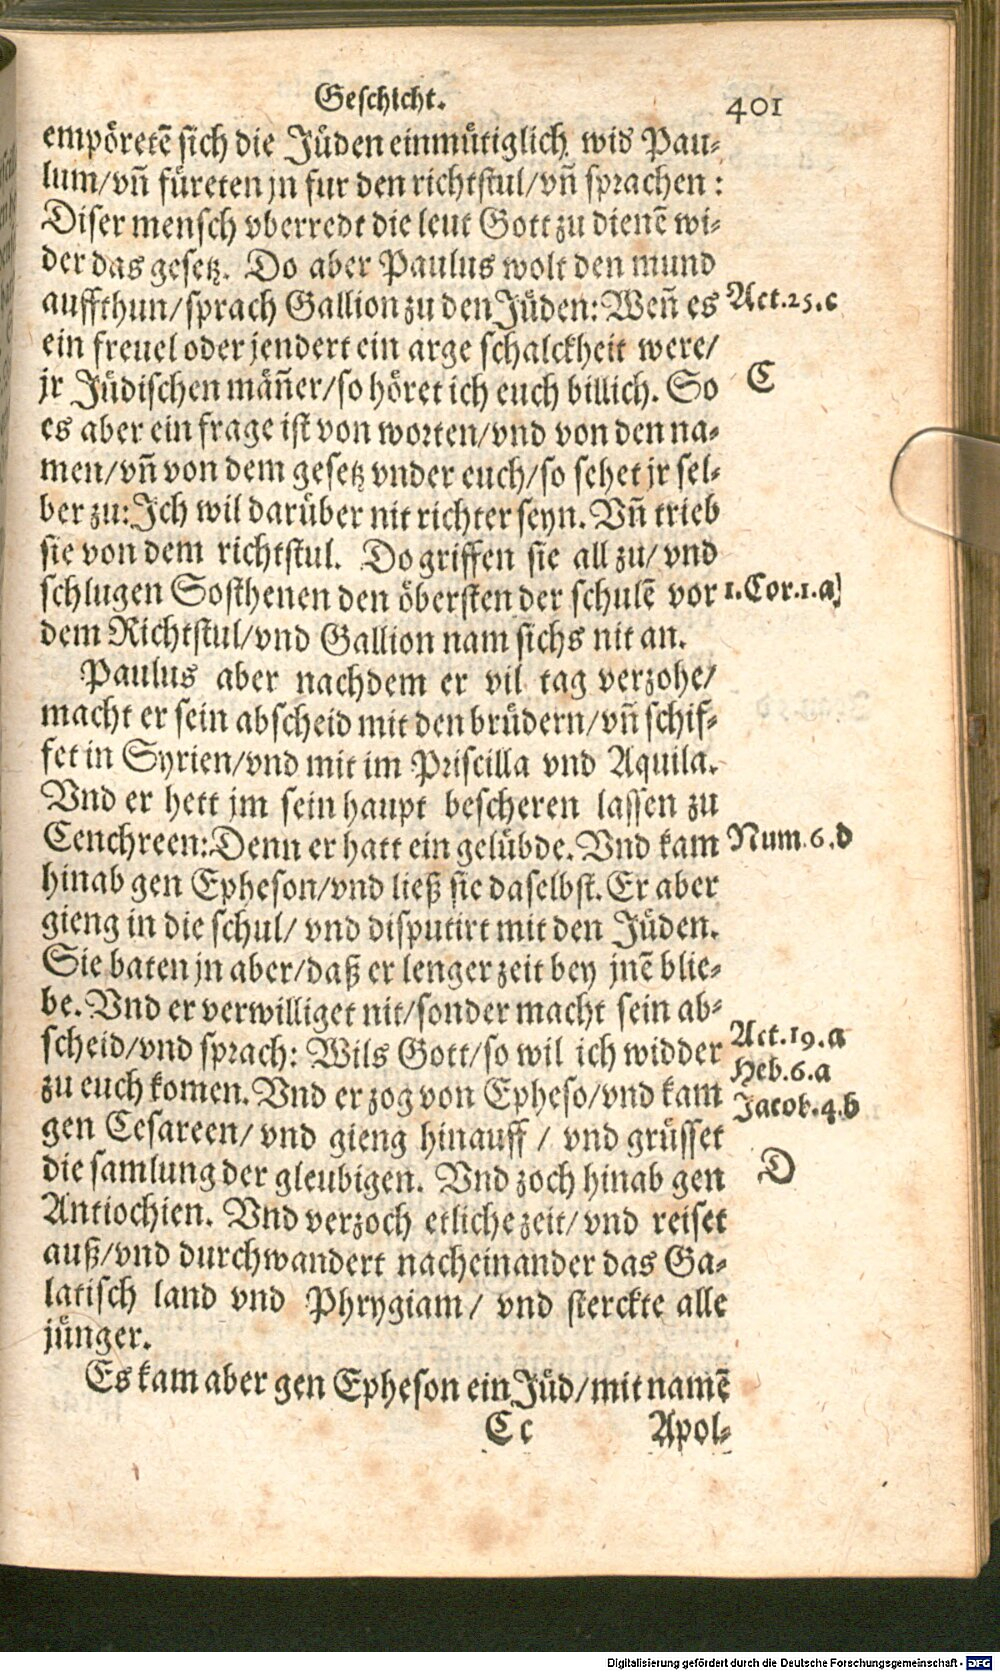 Geschicht. 401
empöretẽ sich die Jüden einmütiglich wid Pau-
lum/vñ füreten jn fur den richtstul/vñ sprachen:
Diser mensch vberredt die leut Gott zu dienẽ wi-
der das gesetz. Do aber Paulus wolt den mund
auffthun/sprach Gallion zu den Jüden: Weñ es Act.25.c
ein freuel oder jendert ein arge schalckheit were/
jr Jüdischen mäñer/so höret ich euch billich. So C
es aber ein frage ist von worten/vnd von den na-
men/vñ von dem gesetz vnder euch/so sehet jr sel-
ber zu: Ich wil darüber nit richter seyn. Vñ trieb
sie von dem richtstul. Do griffen sie all zu/vnd
schlugen Sosthenen den öbersten der schulẽ vor 1.Cor.1.a
dem Richtstul/vnd Gallion nam sichs nit an.
Paulus aber nachdem er vil tag verzohe/
macht er sein abscheid mit den brüdern/vñ schif-
fet in Syrien/vnd mit im Priscilla vnd Aquila.
Vnd er hett jm sein haupt bescheren lassen zu
Cenchreen: Denn er hatt ein gelübde. Vnd kam Num.6.d
hinab gen Epheson/vnd ließ sie daselbst. Er aber
gieng in die schul/ vnd disputirt mit den Jüden.
Sie baten jn aber/daß er lenger zeit bey jnẽ blie-
be. Vnd er verwilliget nit/sonder macht sein ab-
scheid/vnd sprach: Wils Gott/so wil ich widder Act.19.a
zu euch komen. Vnd er zog von Epheso/vnd kam Heb.6.a
gen Cesareen/ vnd gieng hinauff / vnd grüsset Jacob.4.b
die samlung der gleubigen. Vnd zoch hinab gen D
Antiochien. Vnd verzoch etliche zeit/ vnd reiset
auß/vnd durchwandert nacheinander das Ga-
latisch land vnd Phrygiam/ vnd sterckte alle
jünger.
Es kam aber gen Epheson ein Jüd/mit namẽ
Cc Apol-
Digitalisierung gefördert durch die Deutsche Forschungsgemeinschaft - DFG